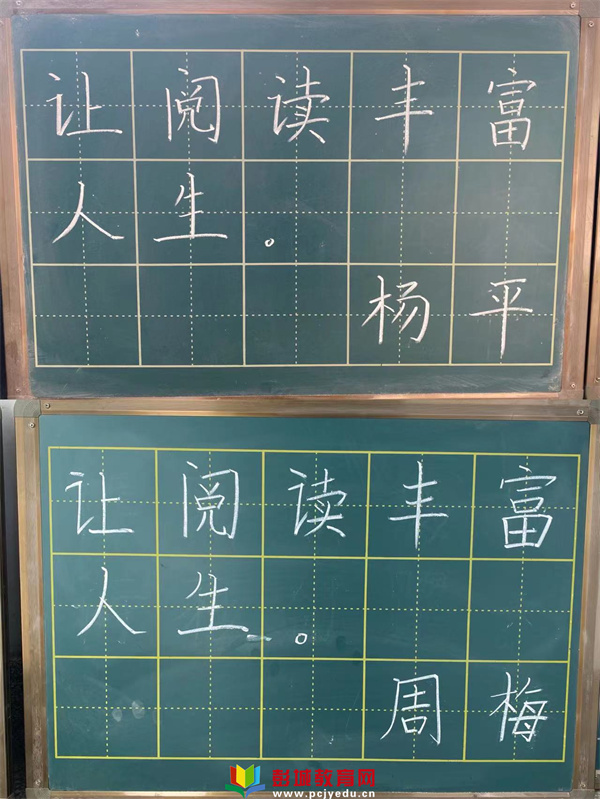 让阅读丰富
人生。
杨平
让阅读丰富
人生。
周梅
彭城教育网
www.pcjyedu.cn